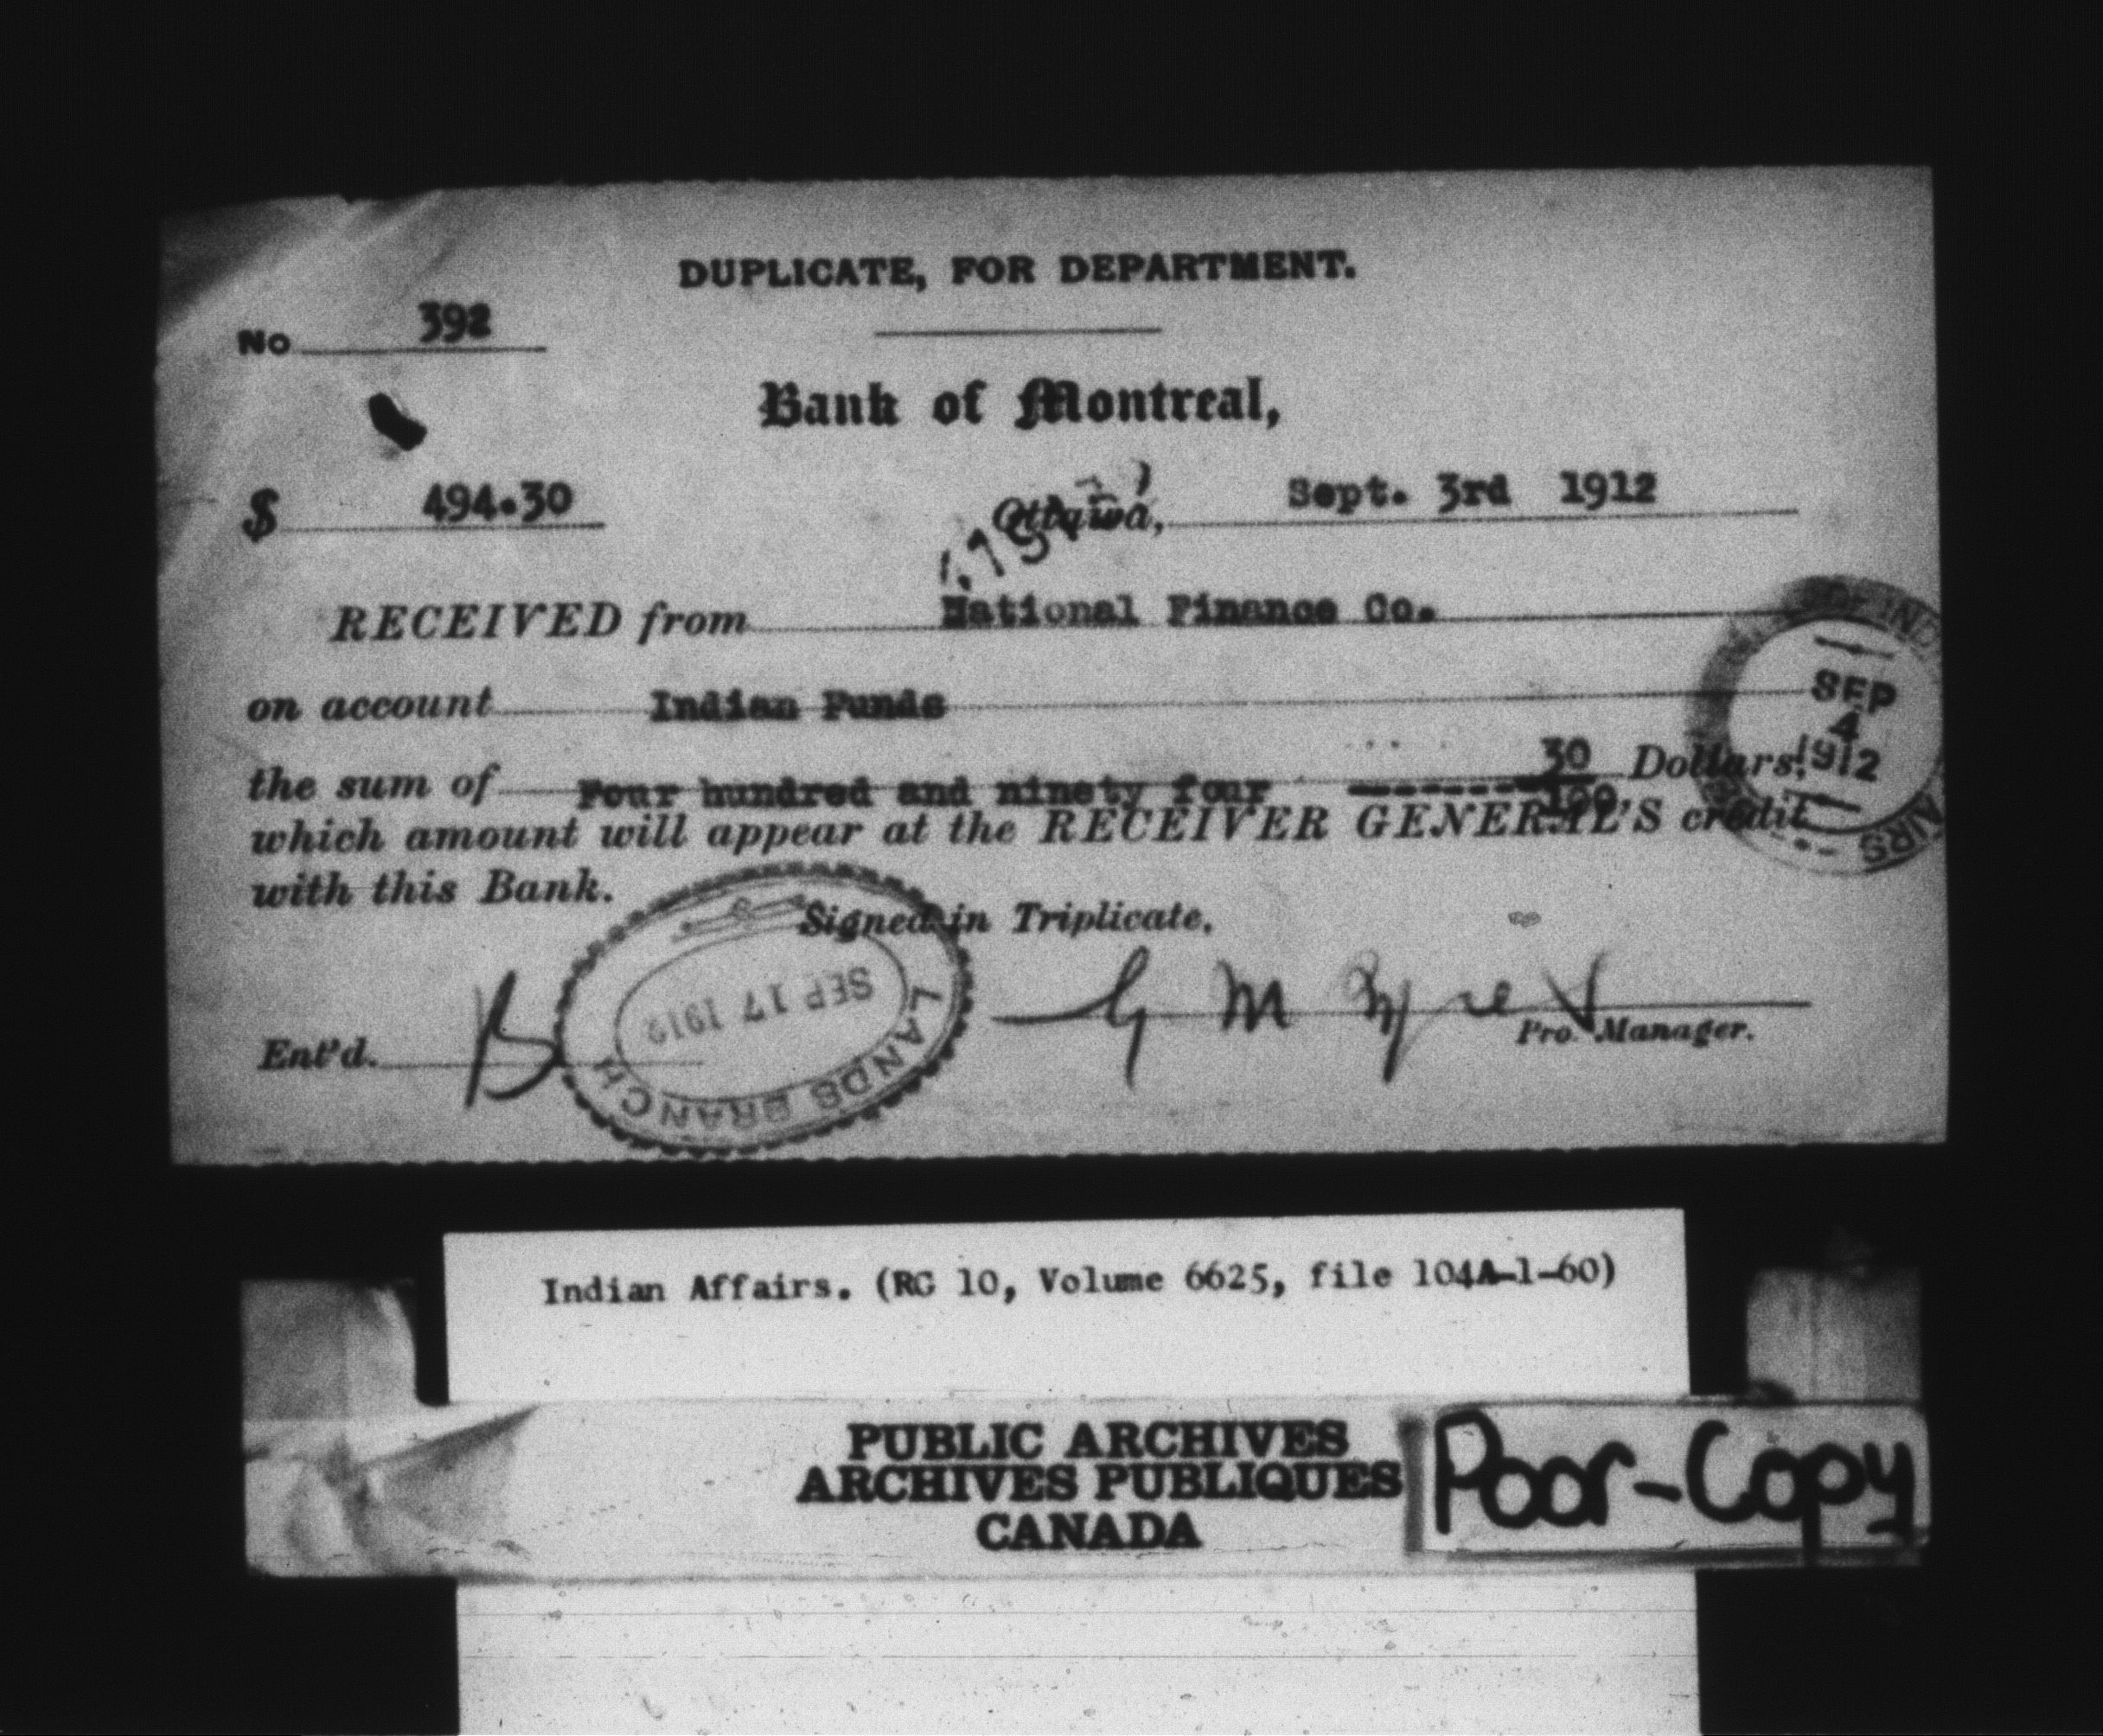 DUPLICATE, FOR DEPARTMENT.
No 392
Bank of Montreal,
$ 494.30 Ottawa, Sept. 3rd 1912
RECEIVED from National Finance Co.
on account Indian Funds
the sum of Four hundred and ninety four -------- 30/100 Dollars,
which amount will appear at the RECEIVER GENERAL'S credit
with this Bank.
Signed in Triplicate,
Ent'd. B
Pro Manager.
SEP
4
1912
LANDS BRANCH
SEP 17 1912
Indian Affairs. (RG 10, Volume 6625, file 104A-1-60)
PUBLIC ARCHIVES
ARCHIVES PUBLIQUES
CANADA
Poor-Copy